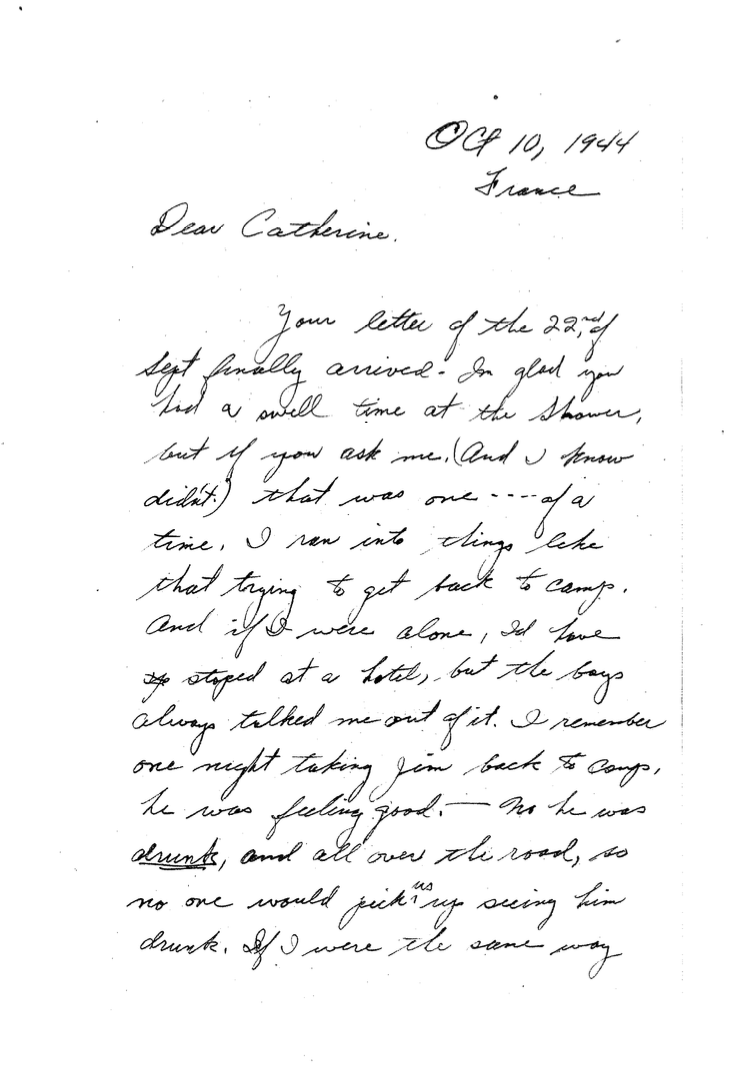 Oct 10, 1944
France
Dear Catherine.
Your letter of the 22nd, of
Sept finally arrived - Im glad you
had a swell time at the shower,
but if you ask me, (And I know
didn't.) that was one ---- of a
time. I ran into things like
that trying to get back to camp.
And if I were alone, Id have
stoped at a hotel, but the boys
always talked me out of it. I remember
one night taking Jim back to camp,
he was feeling good. — No he was
drunk, and all over the road, so
no one would pick us up seeing him
drunk. If I were the same way